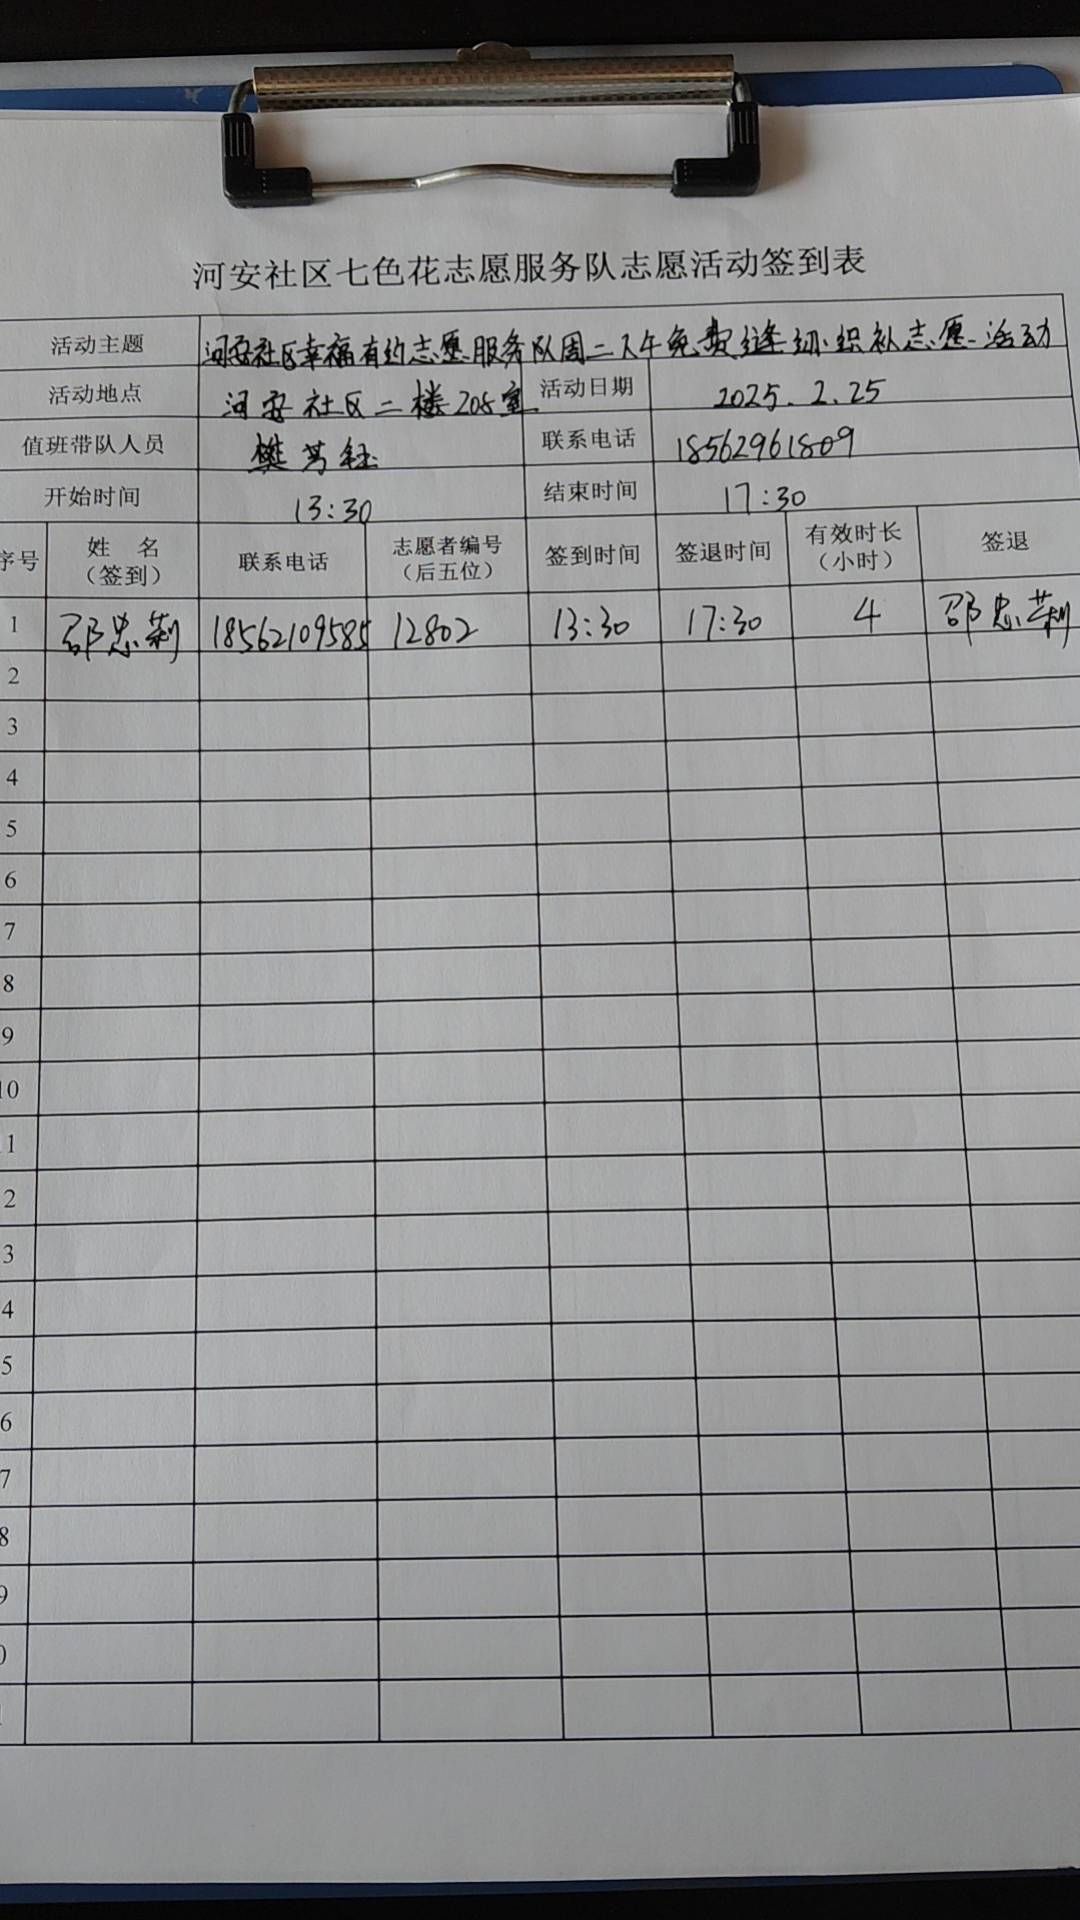 河安社区七色花志愿服务队志愿活动签到表
活动主题 河安社区幸福有约志愿服务队周二下午免费缝纫·织补志愿活动
活动地点 河安社区二楼208室 活动日期 2025.2.25
值班带队人员 樊芳钰 联系电话 18562961809
开始时间 13:30 结束时间 17:30
序号 姓 名（签到） 联系电话 志愿者编号（后五位） 签到时间 签退时间 有效时长（小时） 签退
1 邵忠莉 18562109585 12802 13:30 17:30 4 邵忠莉
2
3
4
5
6
7
8
9
10
1
2
3
4
5
6
7
8
9
0